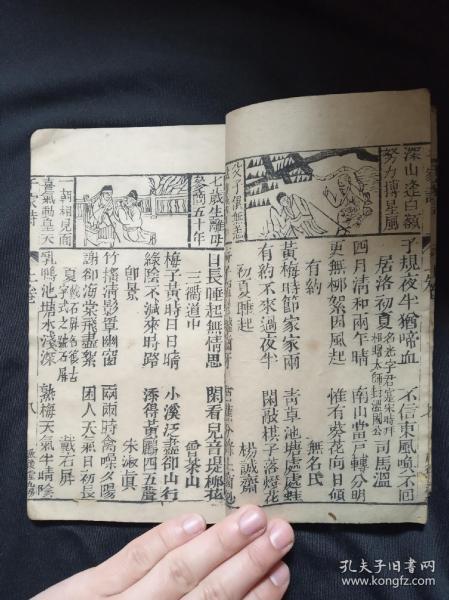 深山逢白額
努力搏腥風
父子俱無恙
子規夜半猶啼血　不信東風喚不回
居洛初夏　名光字君實宋時拜相贈太師封溫國公　司馬溫
四月清和雨乍晴　南山當戶轉分明
更無柳絮因風起　惟有葵花向日傾
有約　無名氏
黃梅時節家家雨　青草池塘處處蛙
有約不來過夜半　閒敲棋子落燈花
初夏睡起　楊誠齋
七歲生離母
參商五十年
一朝相見面
喜氣動皇天
日長睡起無情思　閒看兒童捉柳花
三衢道中　曾茶山
梅子黃時日日晴　小溪泛盡卻山行
綠陰不減來時路　添得黃鸝四五聲
即景　朱淑眞
竹搖清影罩幽窗　兩兩時禽噪夕陽
謝卻海棠飛盡絮　困人天氣日初長
夏　戴石屏
乳鴨池塘水淺深　熟梅天氣半晴陰
千家詩　上卷　八
孔夫子旧书网
www.kongfz.com